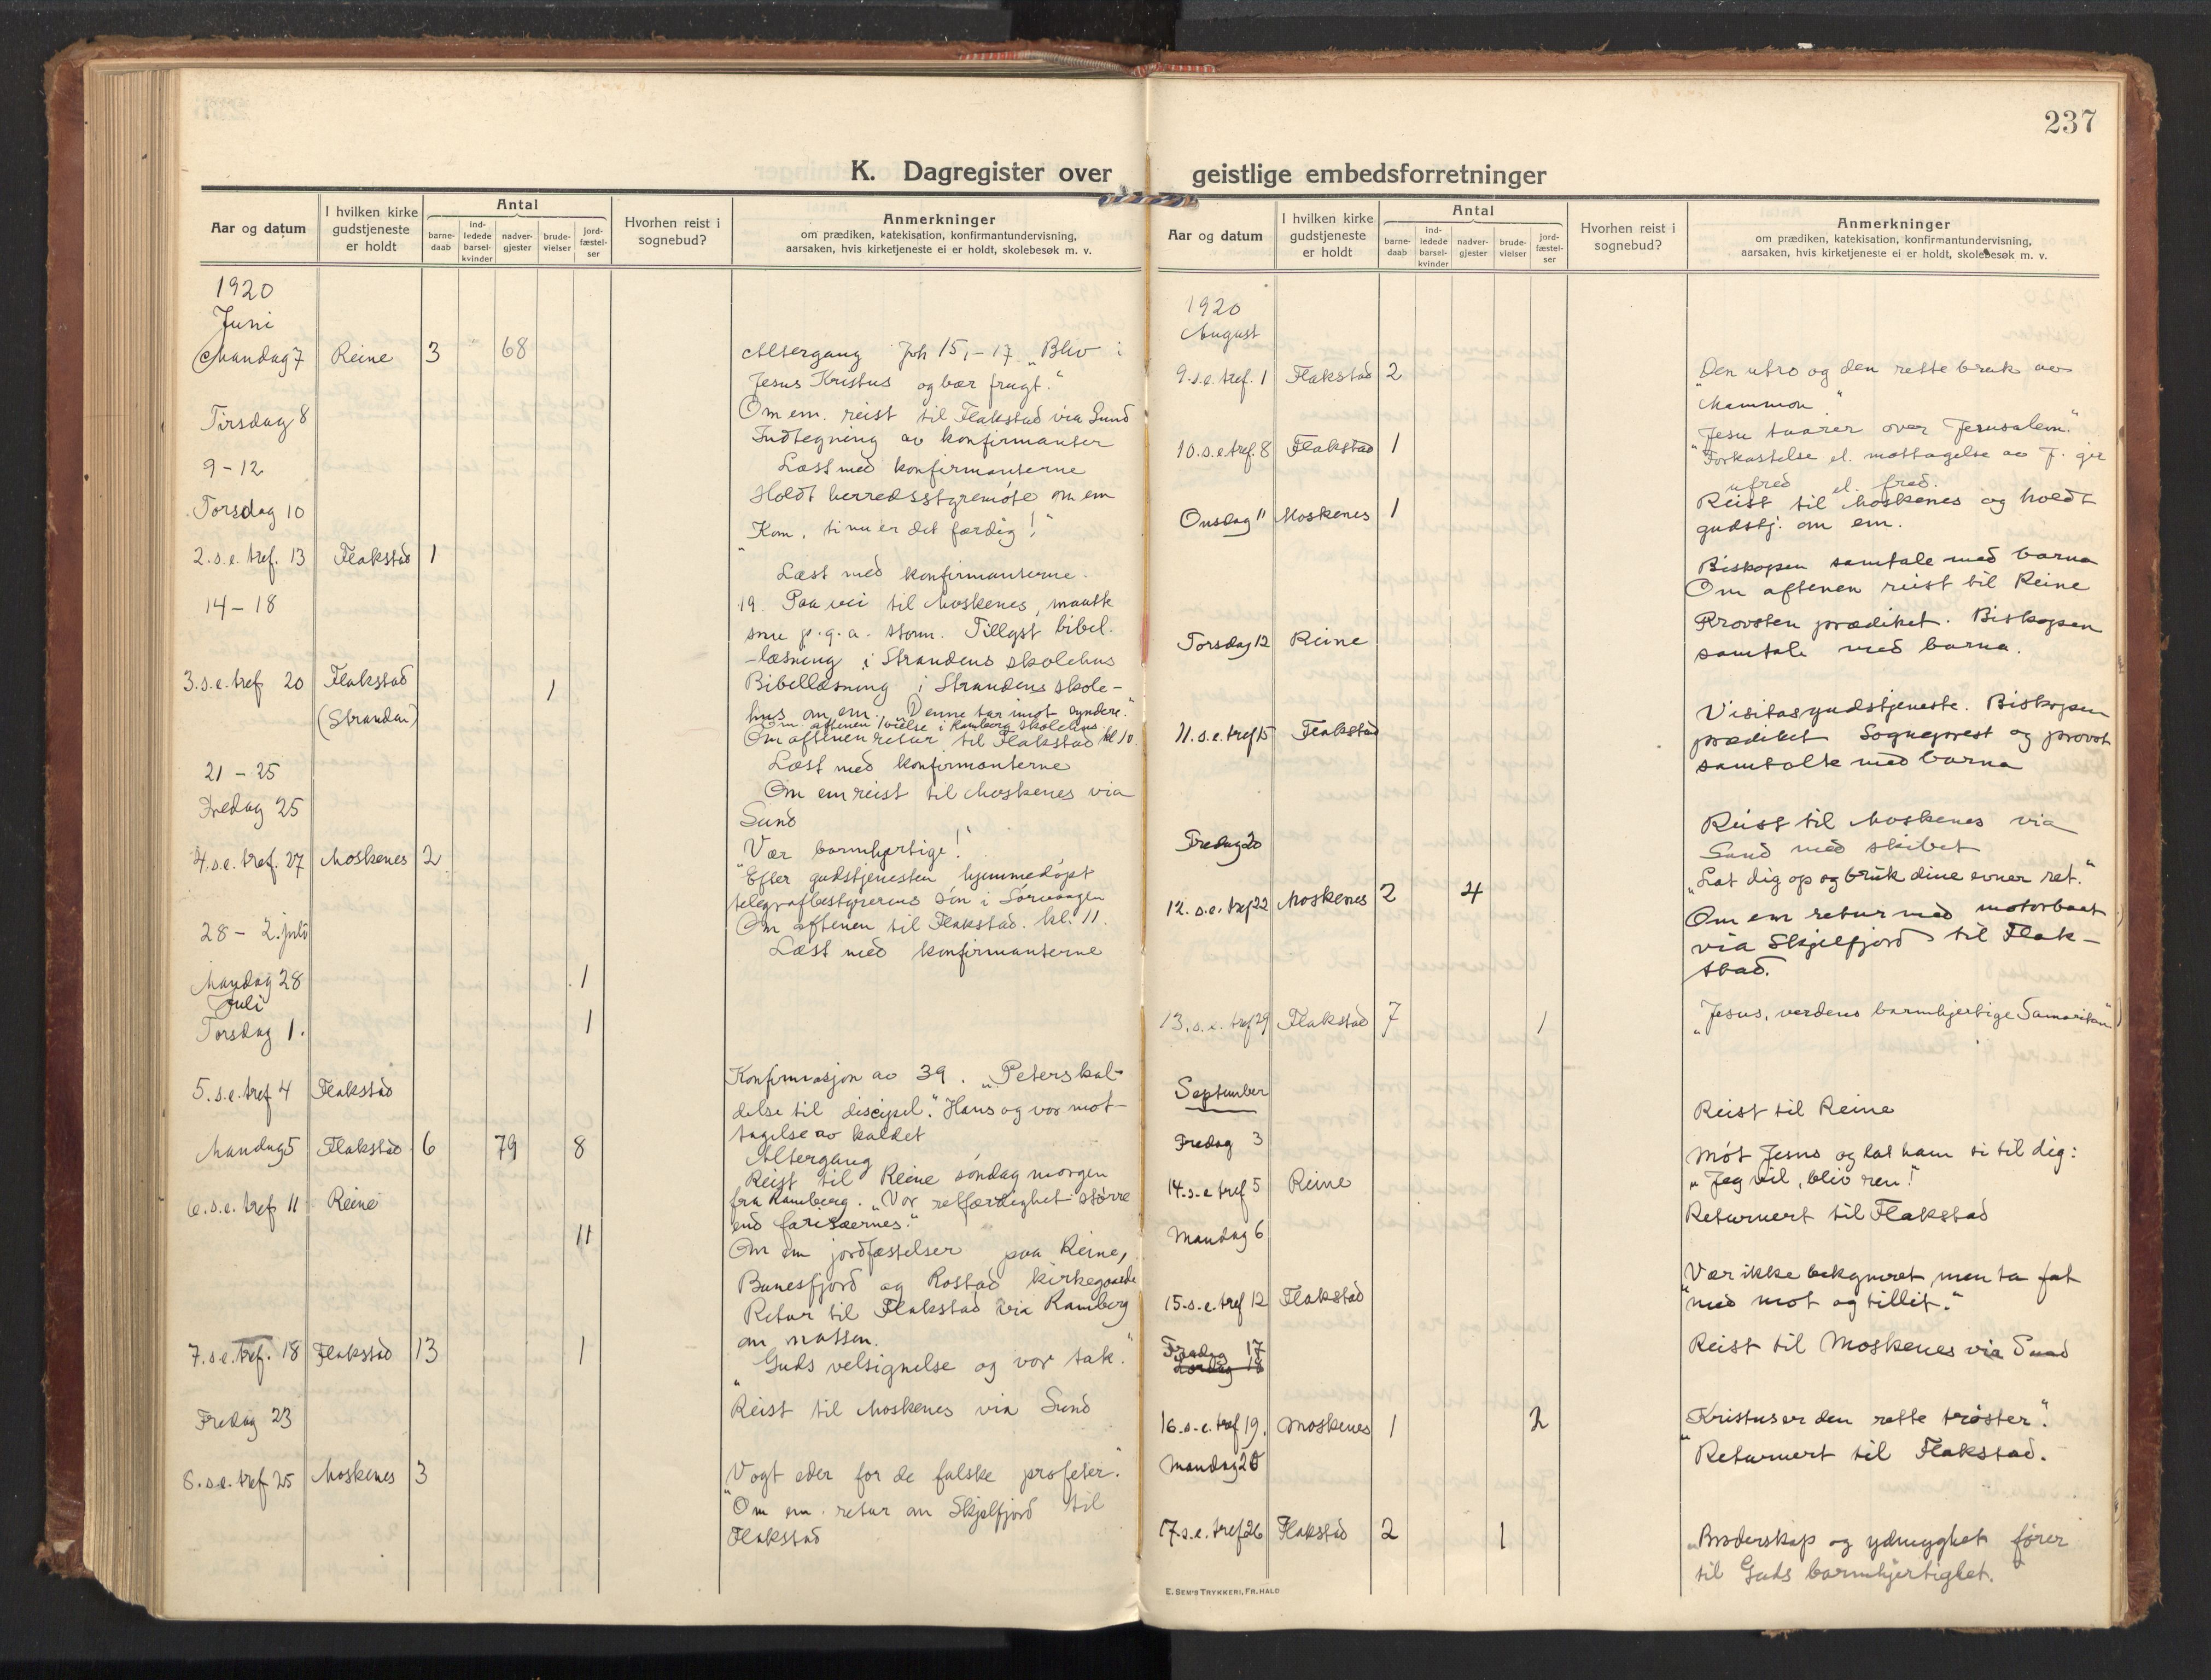 237
K. Dagregister over geistlige embedsforretninger
Aar og datum
I hvilken kirke gudstjeneste er holdt
Antal
barne-daab
ind-ledede barsel-kvinder
nadver-gjester
brude-vielser
jord-fæstel-ser
Hvorhen reist i sognebud?
Anmerkninger
om prædiken, katekisation, konfirmantundervisning,
aarsaken, hvis kirketjeneste ei er holdt, skolebesøk m. v.
1920
Juni
Mandag 7 Reine 3 68 Altergang Joh 15,1-17. "Bliv i
Jesus Kristus og bær frugt."
Tirsdag 8 Om em. reist til Flakstad via Sund
Indtegning av konfirmanter
9-12 Læst med konfirmanterne
Torsdag 10 Holdt herredsstyremøte om em
2. s. e. tref. 13 Flakstad 1 "Kom, ti nu er det færdig!"
14-18 Læst med konfirmanterne.
19. Paa vei til Moskenes, maatte
snu p. g. a. storm. Tillyst bibel-
læsning i Strandens skolehus
3. s. e. tref 20 Flakstad (Stranden) 1 Bibellæsning i Strandens skole-
hus om em. "Denne tar imot syndere."
Om aftenen 1 vielse i Ramberg skolehus
Om aftenen retur til Flakstad kl 10.
21-25 Læst med konfirmanterne
Fredag 25 Om em reist til Moskenes via
Sund
4. s. e. tref. 27 Moskenes 2 "Vær barmhjertige!"
Efter gudstjenesten hjemmedøpt
telegrafbestyrerens søn i Sørvaagen
Om aftenen til Flakstad. kl. 11.
28 - 2. juli Læst med konfirmanterne
Mandag 28 1
Juli
Torsdag 1. 1
5. s. e. tref 4 Flakstad Konfirmasjon av 39. "Peters kal-
delse til discipel." Hans og vor mot-
tagelse av kaldet
Mandag 5 Flakstad 6 79 8 Altergang
6. s. e. tref 11 Reine Reist til Reine søndag morgen
fra Ramberg. "Vor retfærdighet større
end farisæernes."
11 Om em jordfæstelser paa Reine,
Bunesfjord og Rostad kirkegaarde
Retur til Flakstad via Ramberg
om natten.
7. s. e. tref. 18 Flakstad 13 1 "Guds velsignelse og vor tak."
Fredag 23 Reist til Moskenes via Sund
8. s. e. tref 25 Moskenes 3 "Vogt eder for de falske profeter."
Om em. retur om Skjelfjord til
Flakstad
Aar og datum
I hvilken kirke gudstjeneste er holdt
Antal
barne-daab
ind-ledede barsel-kvinder
nadver-gjester
brude-vielser
jord-fæstel-ser
Hvorhen reist i sognebud?
Anmerkninger
om prædiken, katekisation, konfirmantundervisning,
aarsaken, hvis kirketjeneste ei er holdt, skolebesøk m. v.
1920
August
9. s. e. tref. 1 Flakstad 2 "Den utro og den rette bruk av
Mammon."
10. s. e. tref. 8 Flakstad 1 "Jesu taarer over Jerusalem."
"Forkastelse el. mottagelse av J. gir
ufred el. fred.
Onsdag 11 Moskenes 1 Reist til Moskenes og holdt
gudstj. om em.
Biskopen samtale med barna
Om aftenen reist til Reine
Torsdag 12 Reine Provsten prædiket. Biskopen
samtale med barna.
11. s. e. tref 15 Flakstad Visitasgudstjeneste. Biskopen
prædiket Sogneprest og provst
samtalte med barna
Fredag 20 Reist til Moskenes via
Sund med skibet
12. s. e. tref 22 Moskenes 2 4 "Lat dig op og bruk dine evner ret."
Om em retur med motorbaat
via Skjelfjord til Flak-
stad.
13. s. e. tref 29 Flakstad 7 1 "Jesus, verdens barmhjertige Samaritan"
September
Fredag 3 Reist til Reine
14. s. e. tref 5 Reine Møt Jesus og lat ham si til dig:
"Jeg vil, bliv ren!"
Mandag 6 Returnert til Flakstad
15. s. e. tref 12 Flakstad "Vær ikke bekymret, men ta fat
med mot og tillit."
Fredag 17 Reist til Moskenes via Sund
Lørdag 18
16. s. e. tref 19. Moskenes 1 2 "Kristus er den rette trøster."
Mandag 20 Returnert til Flakstad.
17. s. e. tref 26 Flakstad 2 1 "Broderskap og ydmyghet fører
til Guds barmhjertighet.
E. SEM'S TRYKKERI, FR.HALD